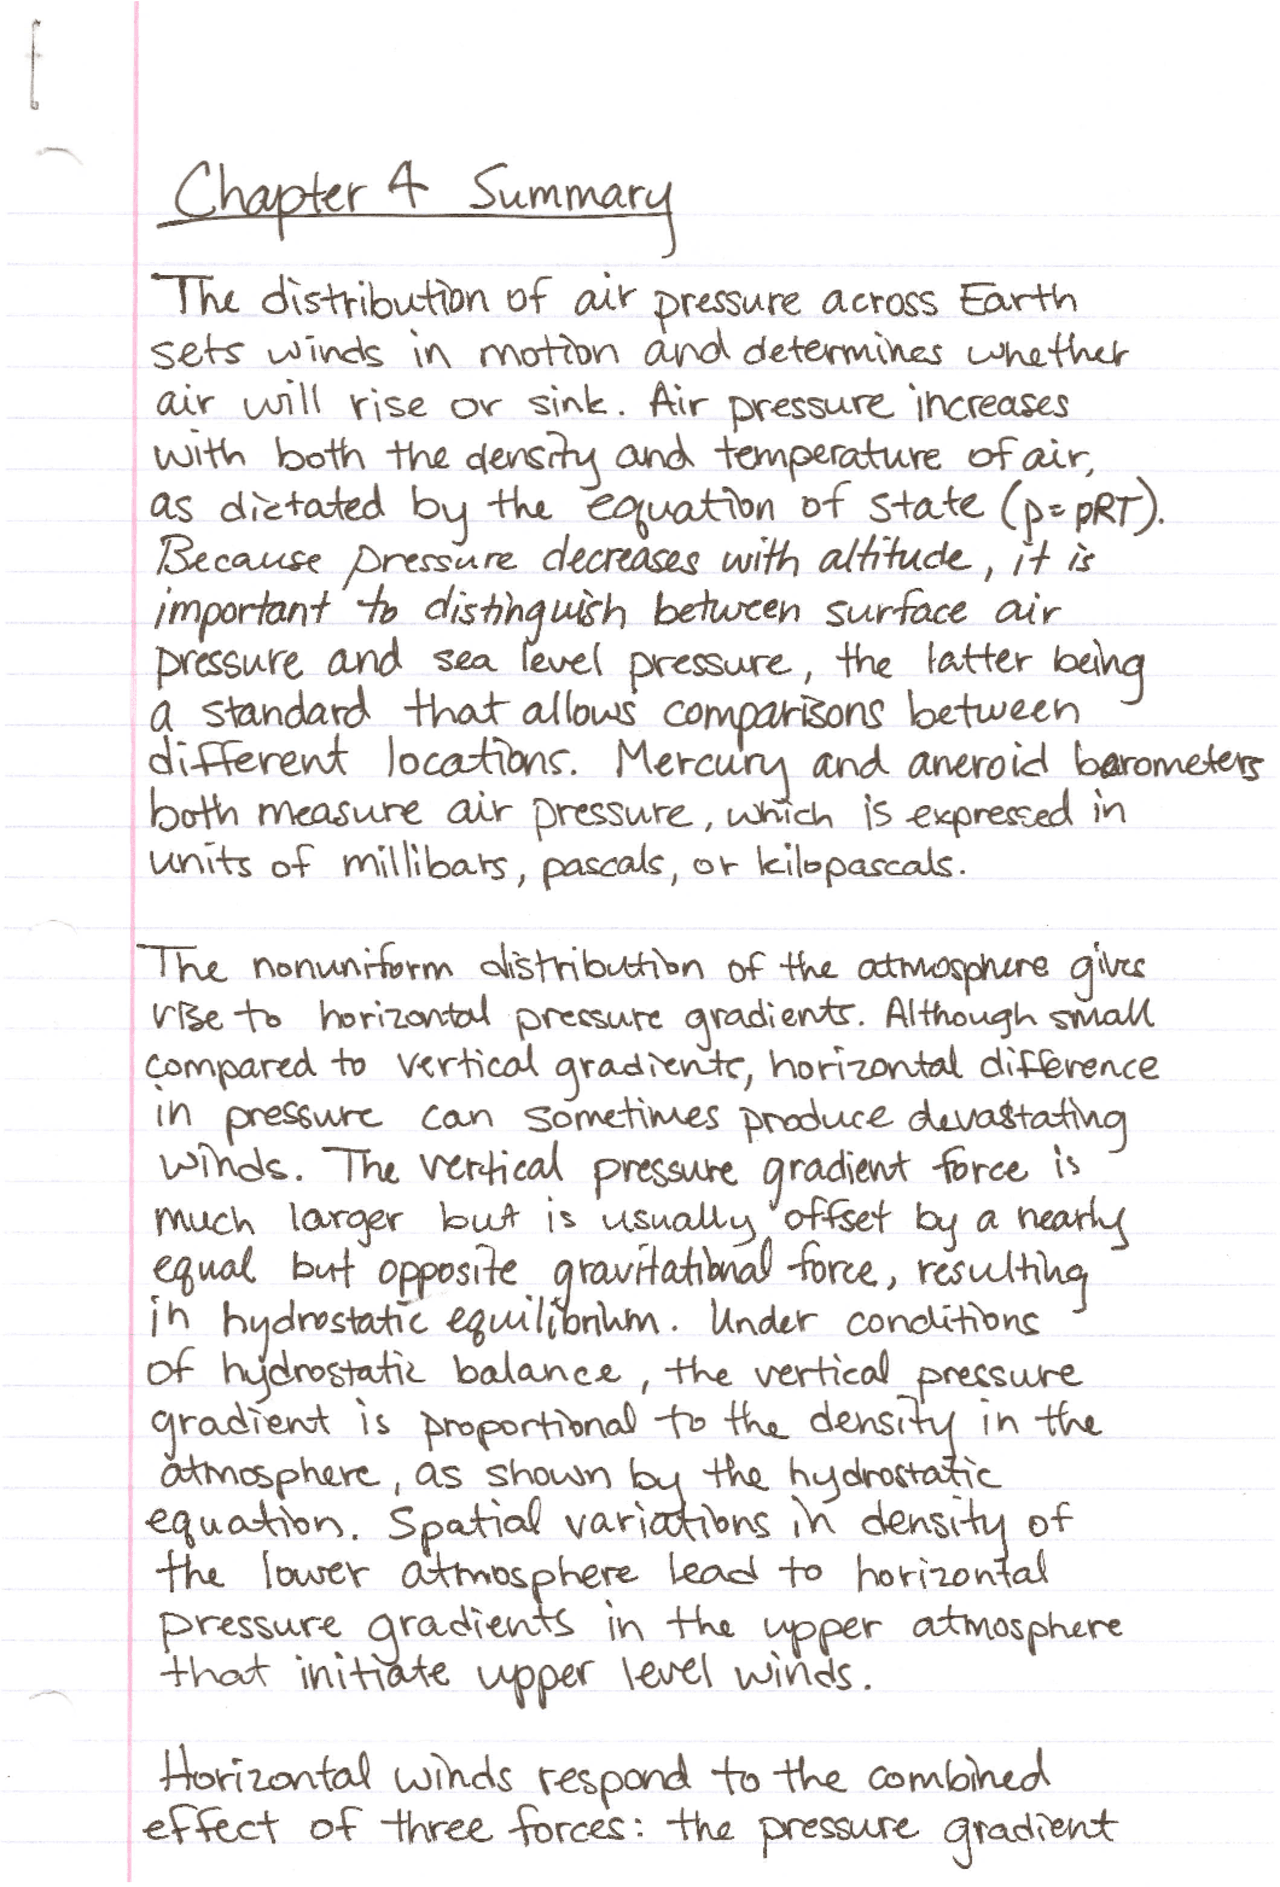 Chapter 4 Summary
The distribution of air pressure across Earth
sets winds in motion and determines whether
air will rise or sink. Air pressure increases
with both the density and temperature of air,
as dictated by the equation of state (p=pRT).
Because pressure decreases with altitude, it is
important to distinguish between surface air
pressure and sea level pressure, the latter being
a standard that allows comparisons between
different locations. Mercury and aneroid barometers
both measure air pressure, which is expressed in
units of millibars, pascals, or kilopascals.
The nonuniform distribution of the atmosphere gives
rise to horizontal pressure gradients. Although small
compared to vertical gradients, horizontal difference
in pressure can sometimes produce devastating
winds. The vertical pressure gradient force is
much larger but is usually offset by a nearly
equal but opposite gravitational force, resulting
in hydrostatic equilibrium. Under conditions
of hydrostatic balance, the vertical pressure
gradient is proportional to the density in the
atmosphere, as shown by the hydrostatic
equation. Spatial variations in density of
the lower atmosphere lead to horizontal
pressure gradients in the upper atmosphere
that initiate upper level winds.
Horizontal winds respond to the combined
effect of three forces: the pressure gradient